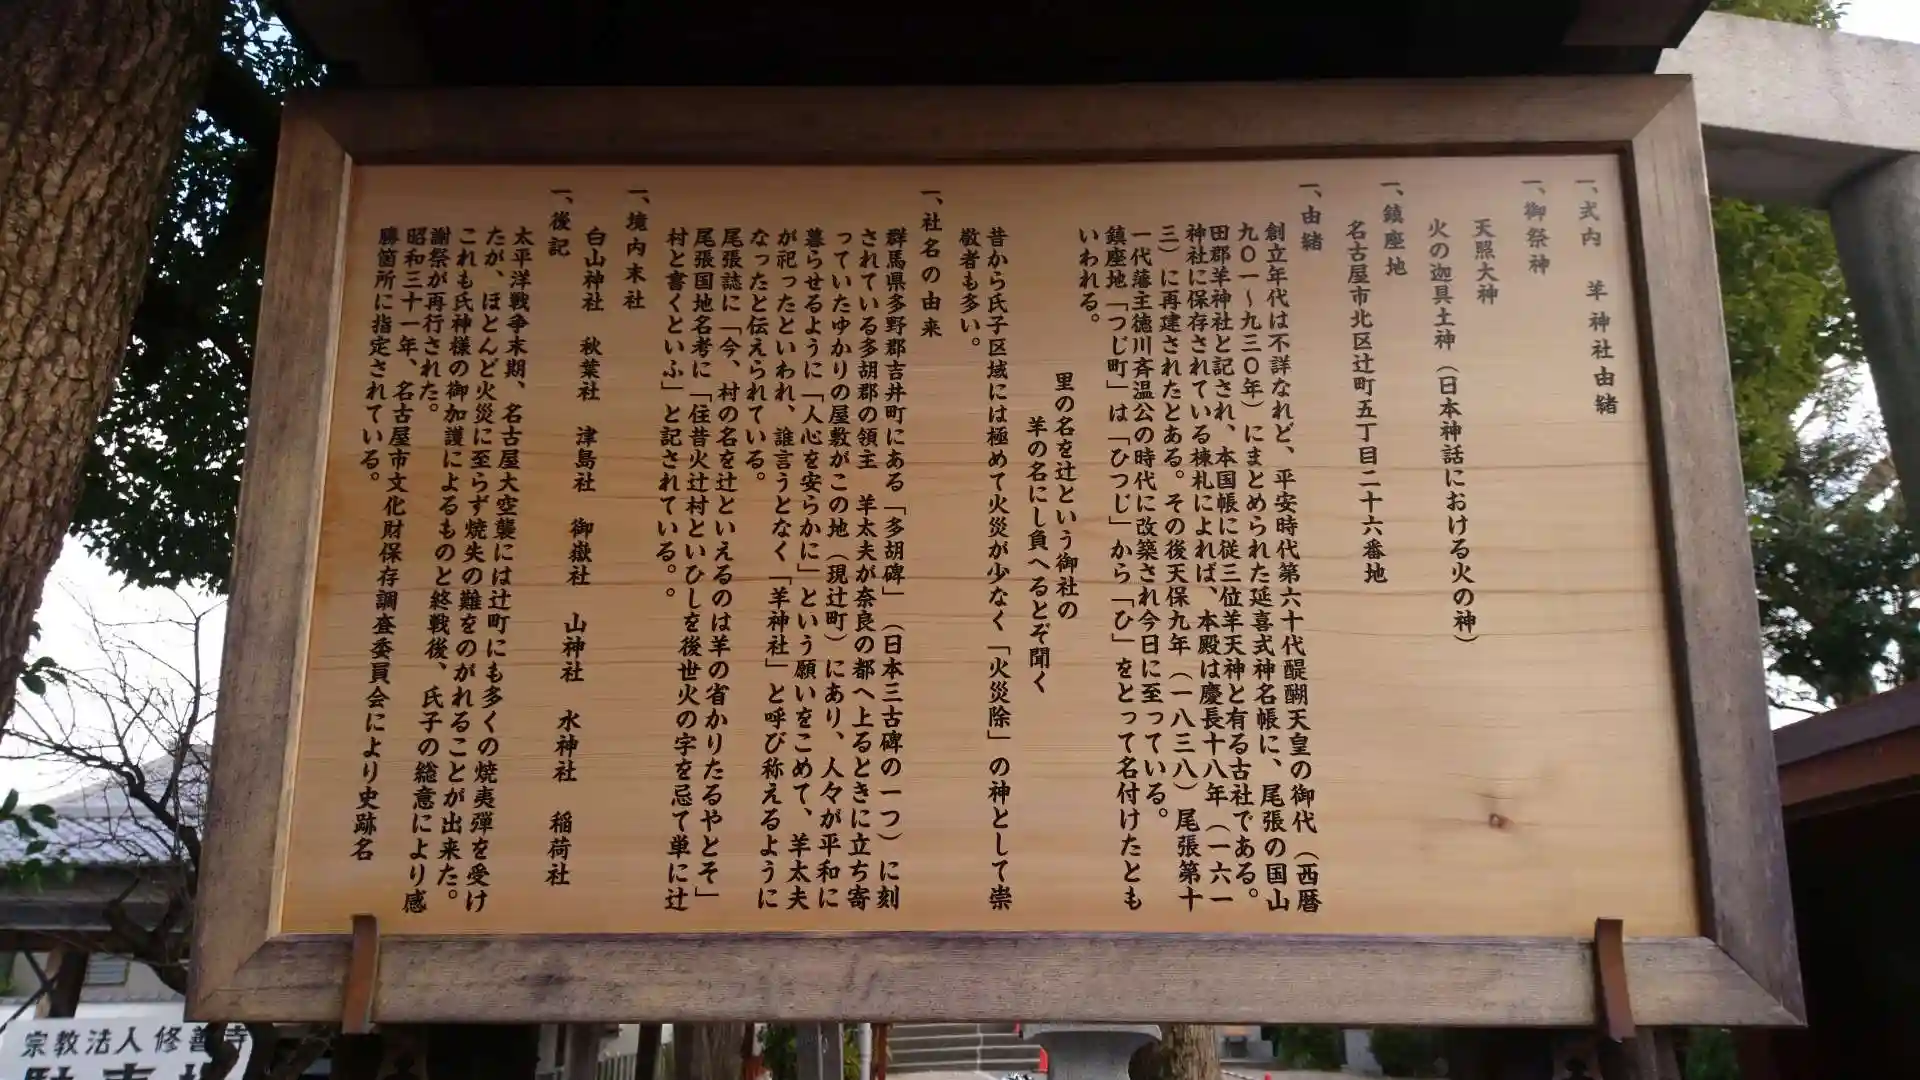 一、式内　羊神社由緒
一、御祭神
天照大神
火の迦具土神（日本神話における火の神）
一、鎮座地
名古屋市北区辻町五丁目二十六番地
一、由緒
創立年代は不詳なれど、平安時代第六十代醍醐天皇の御代（西暦
九〇一～九三〇年）にまとめられた延喜式神名帳に、尾張の国山
田郡羊神社と記され、本国帳に従三位羊天神と有る古社である。
神社に保存されている棟札によれば、本殿は慶長十八年（一六一
三）に再建されたとある。その後天保九年（一八三八）尾張第十
一代藩主徳川斉温公の時代に改築され今日に至っている。
鎮座地「つじ町」は「ひつじ」から「ひ」をとって名付けたとも
いわれる。
里の名を辻という御社の
羊の名にし負へるとぞ聞く
昔から氏子区域には極めて火災が少なく「火災除」の神として崇
敬者も多い。
一、社名の由来
群馬県多野郡吉井町にある「多胡碑」（日本三古碑の一つ）に刻
されている多胡郡の領主　羊太夫が奈良の都へ上るときに立ち寄
っていたゆかりの屋敷がこの地（現辻町）にあり、人々が平和に
暮らせるように「人心を安らかに」という願いをこめて、羊太夫
が祀ったといわれ、誰言うとなく「羊神社」と呼び称えるように
なったと伝えられている。
尾張誌に「今、村の名を辻といえるのは羊の省かりたるやとそ」
尾張国地名考に「住昔火辻村といひしを後世火の字を忌て単に辻
村と書くといふ」と記されている。。
一、境内末社
白山神社　秋葉社　津島社　御嶽社　山神社　水神社　稲荷社
一、後記
太平洋戦争末期、名古屋大空襲には辻町にも多くの焼夷弾を受け
たが、ほとんど火災に至らず焼失の難をのがれることが出来た。
これも氏神様の御加護によるものと終戦後、氏子の総意により感
謝祭が再行された。
昭和三十一年、名古屋市文化財保存調査委員会により史跡名
勝箇所に指定されている。
宗教法人修善寺
駐車場